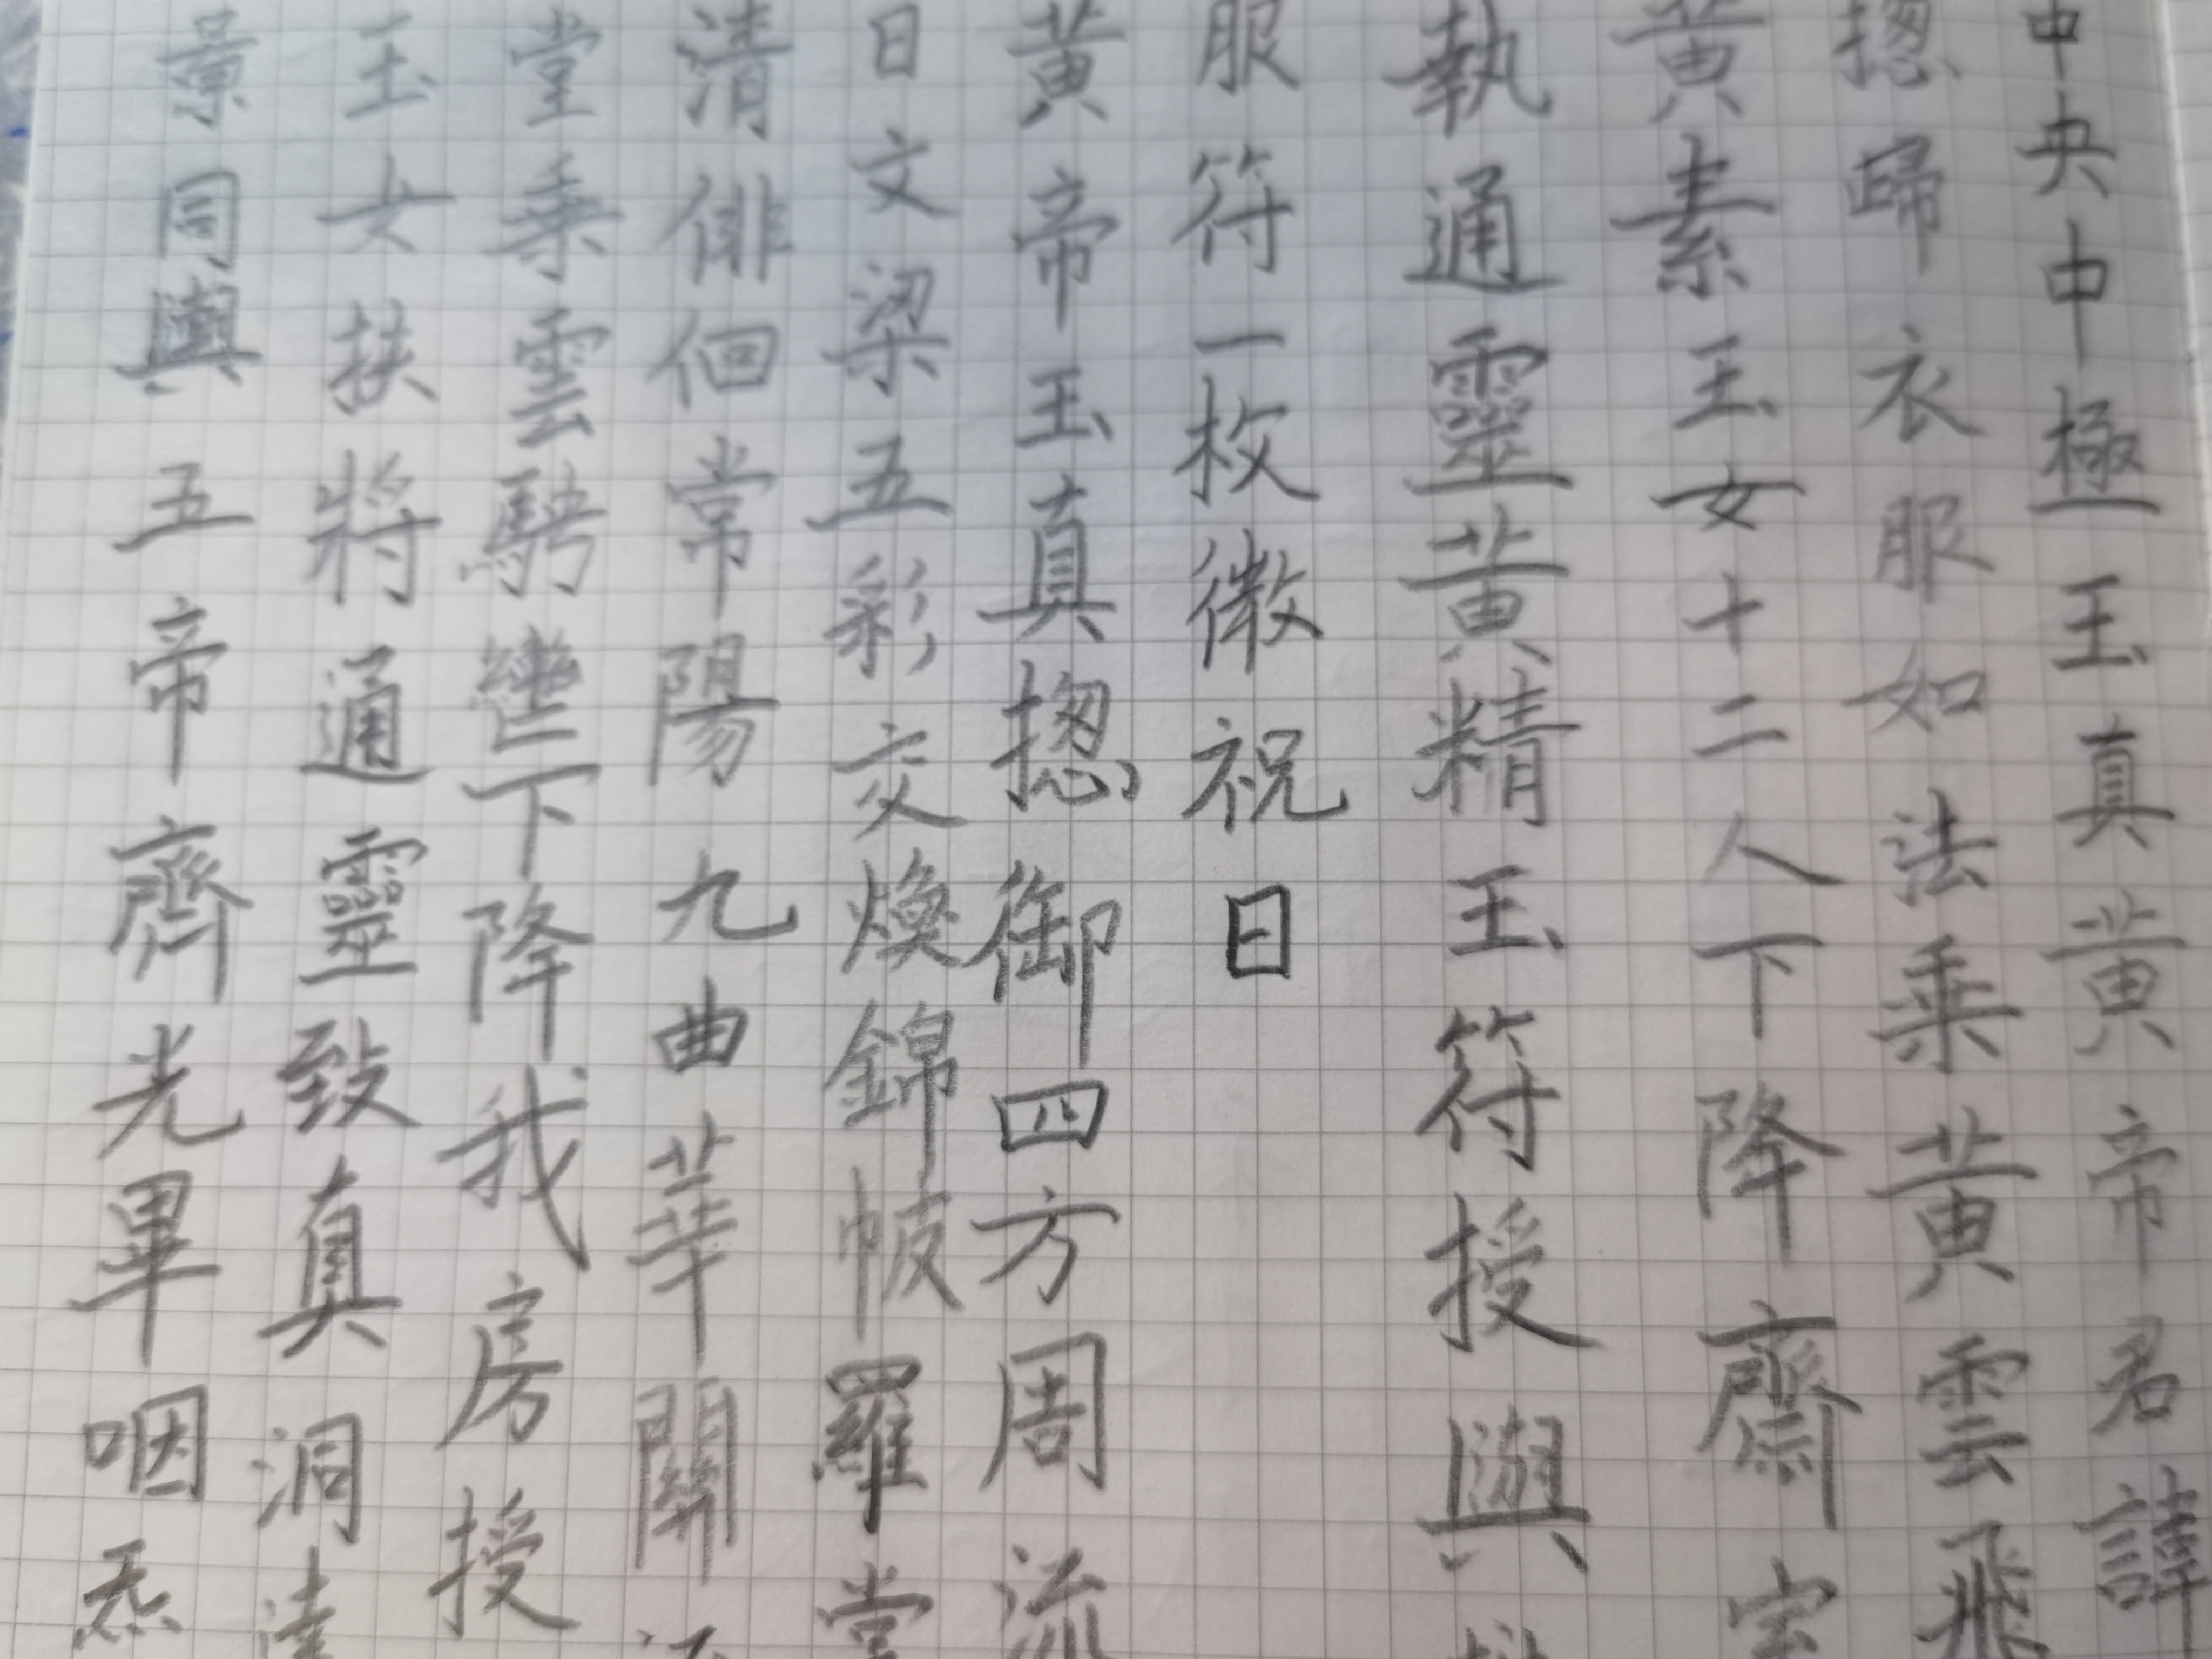 中央中極玉真黃帝君諱
揔歸衣服如法乘黃雲飛
黃素玉女十二人下降齋室
執通靈黃精玉符授與
服符一枚微祝曰
黃帝玉真揔御四方周流
日文梁五彩交煥錦帔羅裳
清俳佪常陽九曲華關
堂乘雲騁轡下降我房授
玉女扶將通靈致真洞達
景同輿五帝齊光畢咽炁